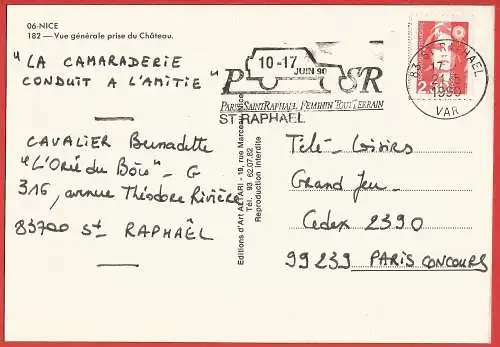 06-NICE
182 — Vue générale prise du Château.
" LA CAMARADERIE
CONDUIT A L'AMITIE "
CAVALIER Bernadette
"L'Orée du Bois" - G
316, avenue Théodore Rivière
83700 St RAPHAËL
Editions d'Art AETARI - 19, rue Marceau, Nice
Tél. : 93 62.07.82
Reproduction interdite
10-17
JUIN 90
P SR
PARIS SAINT RAPHAEL FEMININ TOUT TERRAIN
ST RAPHAEL
83 ST RAPHAEL
17 H
21-5
1990
VAR
Télé-Loisirs
Grand Jeu
Cedex 2390
99239 PARIS CONCOURS